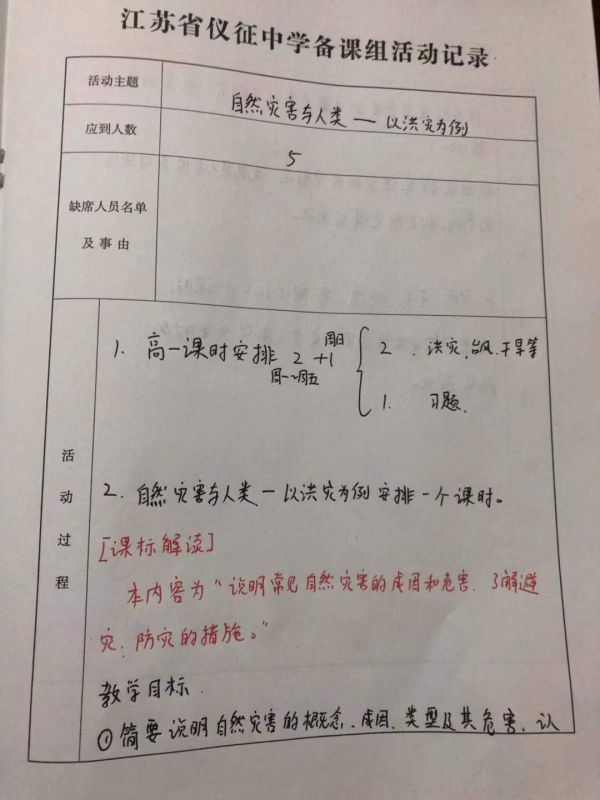 江苏省仪征中学备课组活动记录
活动主题
自然灾害与人类一以洪灾为例
应到人数
5
缺席人员名单
及事由
活动过程
1. 高一课时安排 2+1
周日
周一~周五
2. 洪灾,台风.干旱等
1. 习题.
2. 自然灾害与人类一以洪灾为例安排一个课时。
[课标解读]
本内容为“说明常见自然灾害的成因和危害.了解避
灾、防灾的措施。”
教学目标.
①简要说明自然灾害的概念、成因、类型及其危害、认